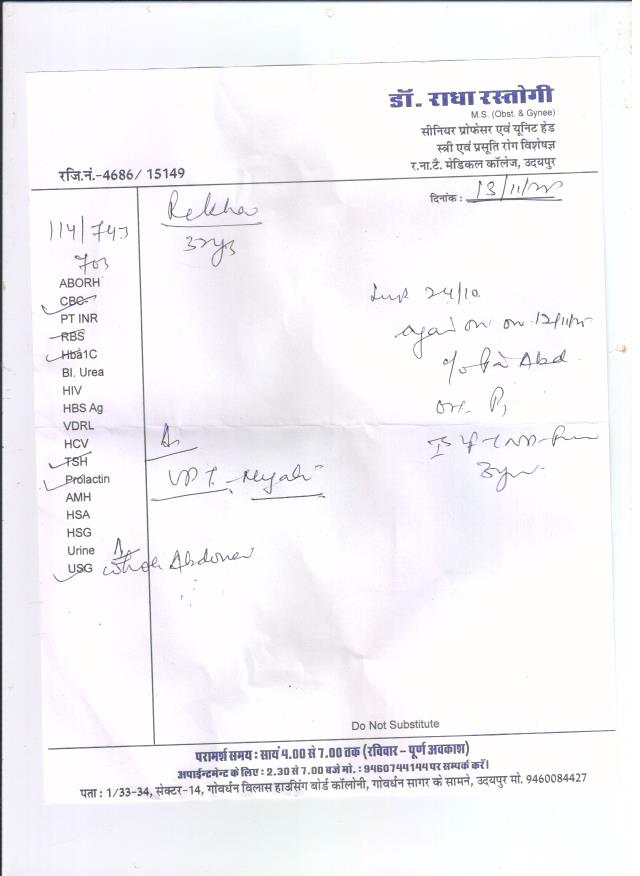 डॉ. राधा रस्तोगी
M.S. (Obst. & Gynee)
सीनियर प्रोफेसर एवं यूनिट हेड
स्त्री एवं प्रसूति रोग विशेषज्ञ
र.ना.टै. मेडिकल कॉलेज, उदयपुर
रजि.नं.-4686/ 15149
दिनांक : 13/11/
Rekha
114/74
ABORH
CBC
PT INR
RBS
Hba1C
Bl. Urea
HIV
HBS Ag
VDRL
HCV
TSH
Prolactin
AMH
HSA
HSG
Urine
USG whole Abdomen
24/10
on 12/11/
Abd
UPT
Do Not Substitute
परामर्श समय : सायं 4.00 से 7.00 तक (रविवार – पूर्ण अवकाश)
अपाईन्टमेन्ट के लिए : 2.30 से 7.00 बजे मो. : 9460744144 पर सम्पर्क करें।
पता : 1/33-34, सेक्टर-14, गोवर्धन विलास हाउसिंग बोर्ड कॉलोनी, गोवर्धन सागर के सामने, उदयपुर मो. 9460084427